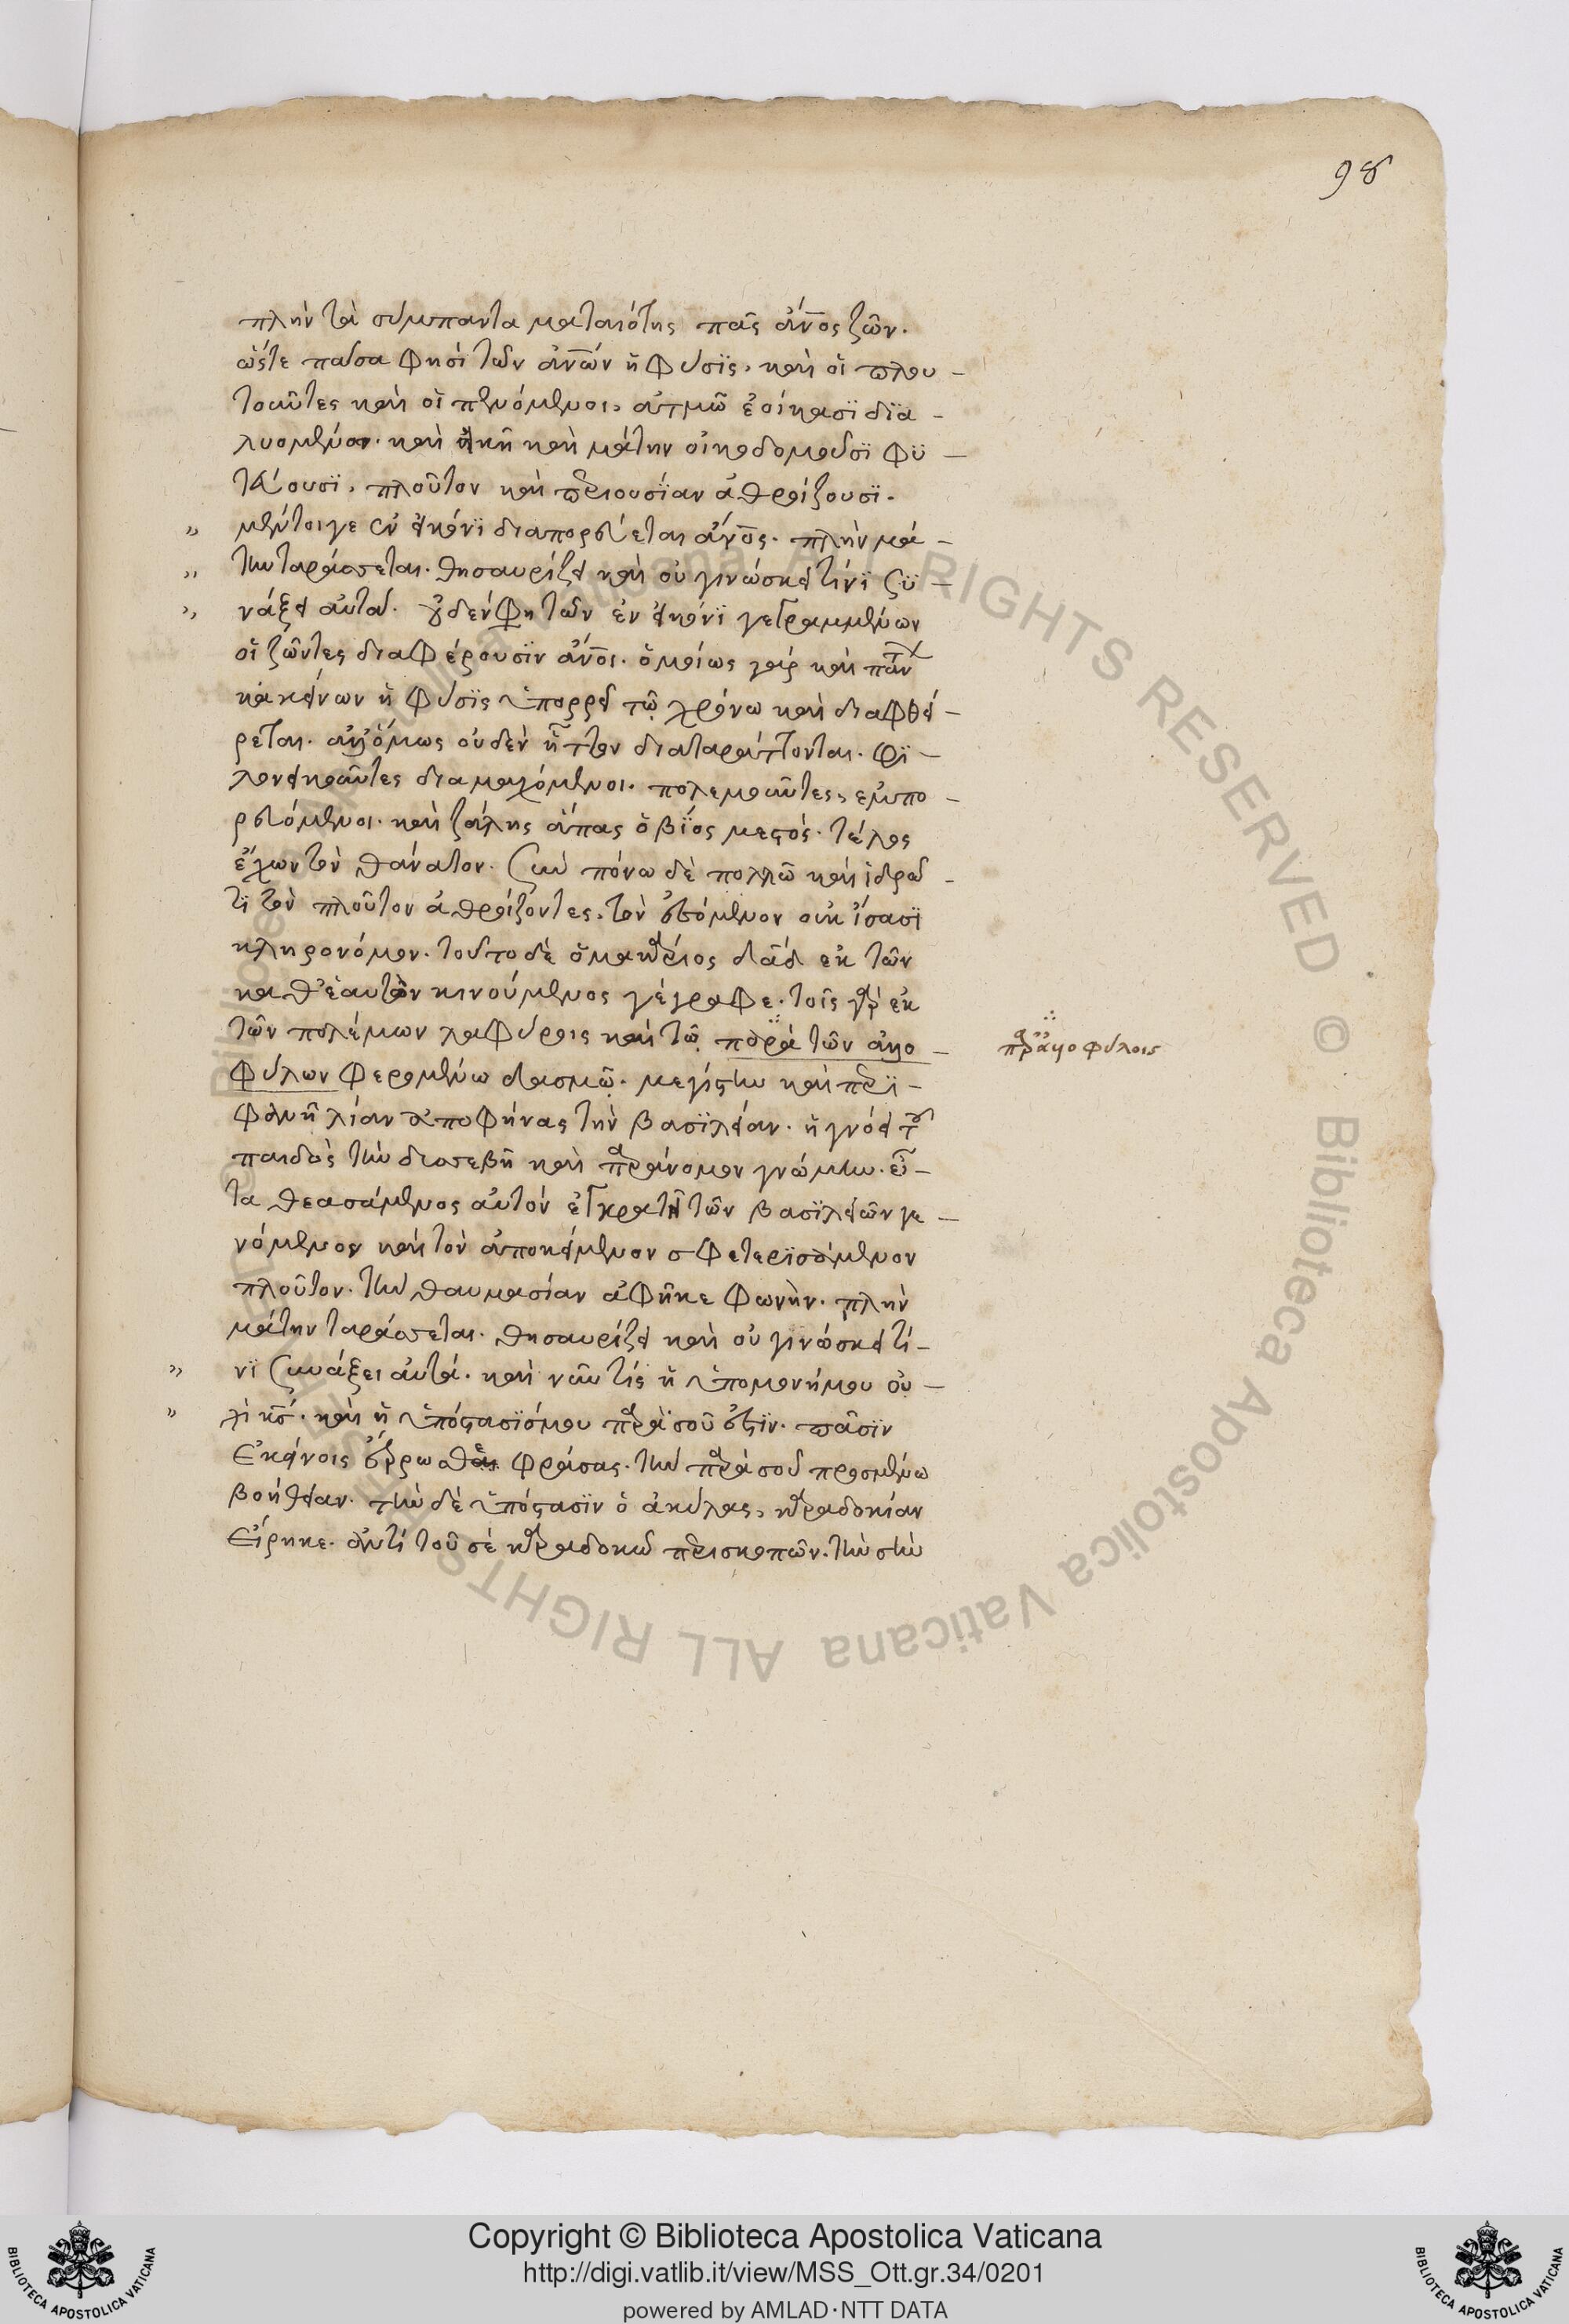 98
πλὴν τὰ σύμπαντα ματαιότης πᾶς ἄνος ζῶν.
ὥστε πᾶσα φησὶ τῶν ἀνῶν ἡ φύσϊς, καὶ οἱ πλου-
τοῦντες καὶ οἱ πενόμενοι, ἀτμῶ ἐοίκασϊ δϊα-
λυομένω. καὶ εἰκῆ καὶ μάτην οἰκοδομοῦσϊ φϋ-
τεύουσϊ, πλοῦτον καὶ περιουσίαν ἀθροίζουσϊ.
„ μέντοιγε ἐν εἰκόνϊ διαπορεύεται ἄνος. πλὴν μά-
„ την ταράσσεται. θησαυρίζει καὶ οὐ γινώσκει τίνϊ συ-
„ νάξει αὐτά. οὐδὲν φη τῶν ἐν εἰκόνϊ γεγραμμένων
οἱ ζῶντες διαφέρουσϊν ἄνοι. ὁμοίως γὰρ καὶ
κἀκείνων ἡ φύσϊς ὑπορρεῖ τῶ χρόνω καὶ διαφθεί-
ρεται. ἀλλ' ὅμως οὐδὲν ἧττον διαταράττονται. φϊ-
λονεικοῦντες διαμαχόμενοι. πολεμοῦντες, ἐμπο-
ρευόμενοι. καὶ ζάλης ἅπας ὁ βίος μεστός. τέλος
ἔχων τὸν θάνατον. σὺν πόνω δὲ πολλῶ καὶ ἱδρῶ-
τϊ τὸν πλοῦτον ἀθροίζοντες, τὸν ἐσόμενον οὐκ ἴσασϊ
κληρονόμον. τοῦτο δὲ ὁ μακάριος δαδ ἐκ τῶν
καθ' ἑαυτὸν κινούμενος γέγραφε. τοῖς γὰρ ἐκ
τῶν πολέμων λαφύροις καὶ τῶ παρὰ τῶν ἀλλο-
φύλων φερομένω δασμῶ. μεγίστην καὶ περϊ-
φανῆ λίαν ἀποφήνας τὴν βασϊλείαν. ἠγνόει τοῦ
παιδὸς τὴν δυσσεβῆ καὶ παράνομον γνώμην. εἶ-
τα θεασάμενος αὐτὸν ἐγκρατῆ τῶν βασϊλείων γε-
νόμενον καὶ τὸν ἀποκείμενον σφετερϊσάμενον
πλοῦτον. τὴν θαυμασίαν ἀφῆκε φωνὴν. πλὴν
μάτην ταράσσεται. θησαυρίζει καὶ οὐ γινώσκει τί-
„ νϊ συνάξει αὐτά. καὶ νῦν τίς ἡ ὑπομονή μου οὐ-
„ χὶ κς. καὶ ἡ ὑπόστασϊς μου παρὰ σοῦ ἐστϊν. πᾶσϊν
ἐκείνοις ἐρρῶσθαι φράσας. τὴν παρὰ σοῦ προσμένω
βοήθειαν. τὴν δὲ ὑπόστασϊν ὁ ἀκύλας, καραδοκίαν
εἴρηκε. ἀντὶ τοῦ σὲ καραδοκῶ περισκοπῶν. τὴν σὴν
παρ' ἀλλοφύλοις
Copyright © Biblioteca Apostolica Vaticana
http://digi.vatlib.it/view/MSS_Ott.gr.34/0201
powered by AMLAD·NTT DATA
BIBLIOTECA APOSTOLICA VATICANA
BIBLIOTECA APOSTOLICA VATICANA
© Biblioteca Apostolica Vaticana ALL RIGHTS RESERVED © Biblioteca Apostolica Vaticana ALL RIGHTS RESERVED